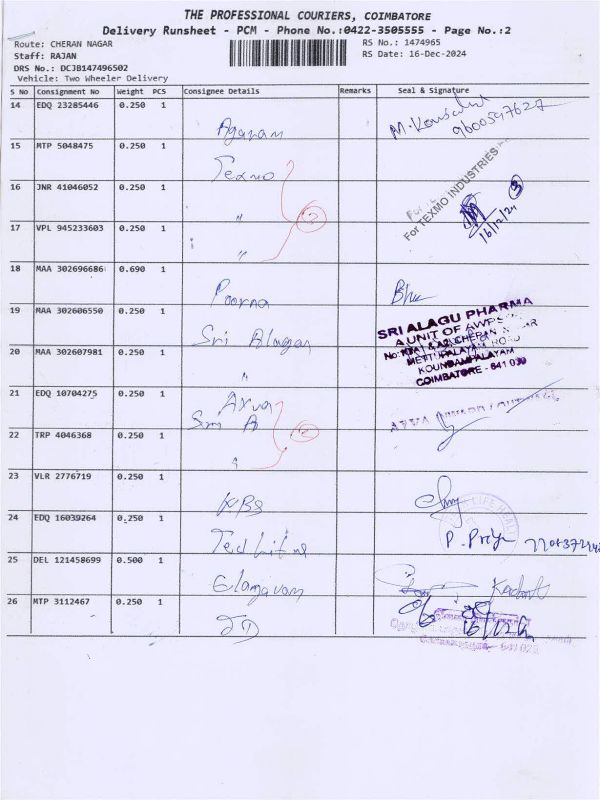 THE PROFESSIONAL COURIERS, COIMBATORE
Delivery Runsheet - PCM - Phone No.:0422-3505555 - Page No.:2
Route: CHERAN NAGAR
RS No.: 1474965
Staff: RAJAN
RS Date: 16-Dec-2024
DRS No.: DCJB147496502
Vehicle: Two Wheeler Delivery
S No Consignment No Weight PCS Consignee Details Remarks Seal & Signature
14 EDQ 23285446 0.250 1
Aganam
9600597627
15 MTP 5048475 0.250 1
Texmo
For TEXMO INDUSTRIES
16 JNR 41046052 0.250 1
" 3
16/12/24
17 VPL 945233603 0.250 1
"
18 MAA 302696686 0.690 1
Poorna
19 MAA 302606550 0.250 1
Sri Alagar
SRI ALAGU PHARMA
A UNIT OF
CHERAN NAGAR
METTUPALAYAM ROAD
KOUNDAMPALAYAM
COIMBATORE - 641 030
20 MAA 302607981 0.250 1
"
21 EDQ 10704275 0.250 1
22 TRP 4046368 0.250 1
23 VLR 2776719 0.250 1
KBS
24 EDQ 16039264 0.250 1
P. Priya
25 DEL 121458699 0.500 1
Elangovan
26 MTP 3112467 0.250 1
JD